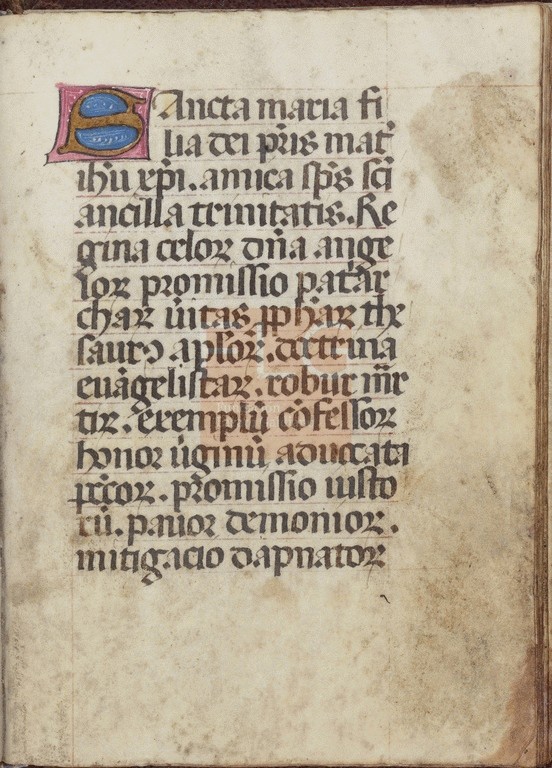 Sancta maria fi
lia dei pr̄is mat᷑
ihū xp̄i. amica sp̄s sc̄i
ancilla trinitatis. Re
gina celoꝝ dn̄a ange
loꝝ promissio patar
chaꝝ ūitas ꝓphaꝝ the
saurꝰ apl̄oꝝ. doctrina
euāgelistaꝝ. robur mr̄
tiꝝ. exemplū cōfessoꝝ
honor ūginū aduocata
pc̄coꝝ. promissio iusto
rū. pauor demonioꝝ.
mitigacio dapnatoꝝ